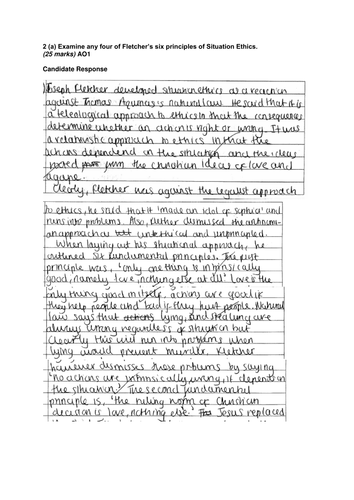 2 (a) Examine any four of Fletcher's six principles of Situation Ethics.
(25 marks) AO1
Candidate Response
Joseph Fletcher developed situation ethics as a reaction
against Thomas Aquinas's natural law. He said that it is
a teleological approach to ethics in that the consequences
determine whether an action is right or wrong. It was
a relativistic approach to ethics in that the
actions depended on the situation and the ideas
the Christian ideas of love and
agape.
Clearly, Fletcher was against the legalist approach
to ethics, he said that it 'made an idol of Sophia' and
runs into problems. Also, Fletcher dismissed the antinomi-
an approach as unethical and unprincipled.
When laying out his situational approach, he
outlined six fundamental principles. The first
principle was, 'only one thing is intrinsically
good, namely love, nothing else at all'. Love is the
only thing good in itself, actions are good if
they help people and bad if they hurt people. Natural
law says that actions lying, and stealing are
always wrong regardless of situation but
clearly this will run into problems when
lying would prevent murder. Fletcher
however dismisses these problems by saying
'no actions are intrinsically wrong, it depends on
the situation'. The second fundamental
principle is, 'the ruling norm of Christian
decision is love, nothing else.' Jesus replaced